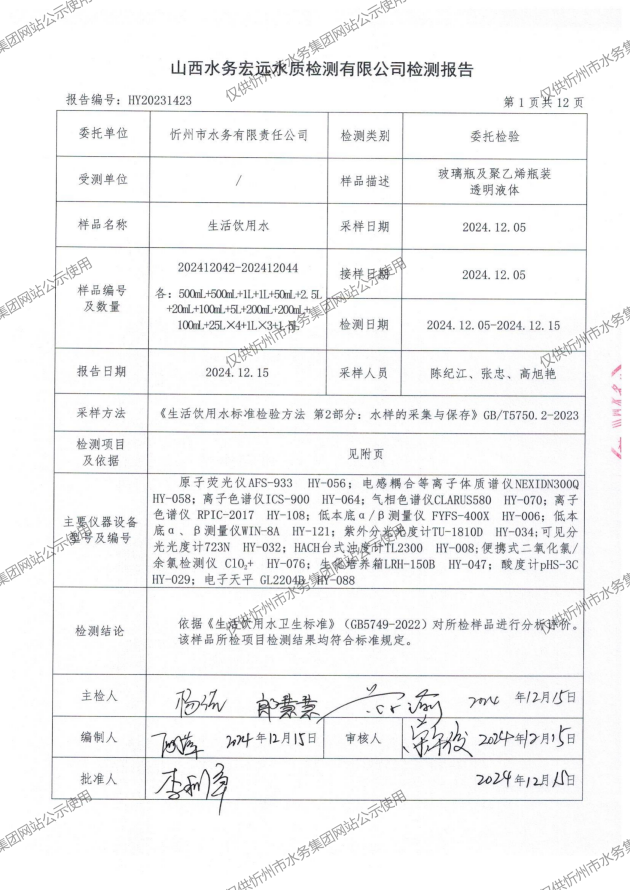 山西水务宏远水质检测有限公司检测报告
报告编号: HY20231423
第 1 页共 12 页
委托单位
忻州市水务有限责任公司
检测类别
委托检验
受测单位
/
样品描述
玻璃瓶及聚乙烯瓶装
透明液体
样品名称
生活饮用水
采样日期
2024.12.05
样品编号
及数量
202412042-202412044
各: 500mL+500mL+1L+1L+50mL+2.5L
+20mL+100mL+5L+200mL+200mL+
100mL+25L×4+1L×3+1.5L
接样日期
2024.12.05
检测日期
2024.12.05-2024.12.15
报告日期
2024.12.15
采样人员
陈纪江、张忠、高旭艳
采样方法
《生活饮用水标准检验方法 第2部分: 水样的采集与保存》GB/T5750.2-2023
检测项目
及依据
见附页
主要仪器设备
型号及编号
原子荧光仪AFS-933 HY-056; 电感耦合等离子体质谱仪NEXIDN300Q
HY-058; 离子色谱仪ICS-900 HY-064; 气相色谱仪CLARUS580 HY-070; 离子
色谱仪 RPIC-2017 HY-108; 低本底α/β测量仪 FYFS-400X HY-006; 低本
底α、β测量仪WIN-8A HY-121; 紫外分光光度计TU-1810D HY-034;可见分
光光度计723N HY-032; HACH台式浊度计TL2300 HY-008;便携式二氧化氯/
余氯检测仪 ClO₂+ HY-076; 生化培养箱LRH-150B HY-047; 酸度计pHS-3C
HY-029; 电子天平 GL2204B HY-088
检测结论
依据《生活饮用水卫生标准》(GB5749-2022) 对所检样品进行分析评价。
该样品所检项目检测结果均符合标准规定。
主检人
2024 年12月15日
编制人
2024年12月15日
审核人
2024年12月15日
批准人
李利军
2024年12月15日
仅供忻州市水务集团网站公示使用